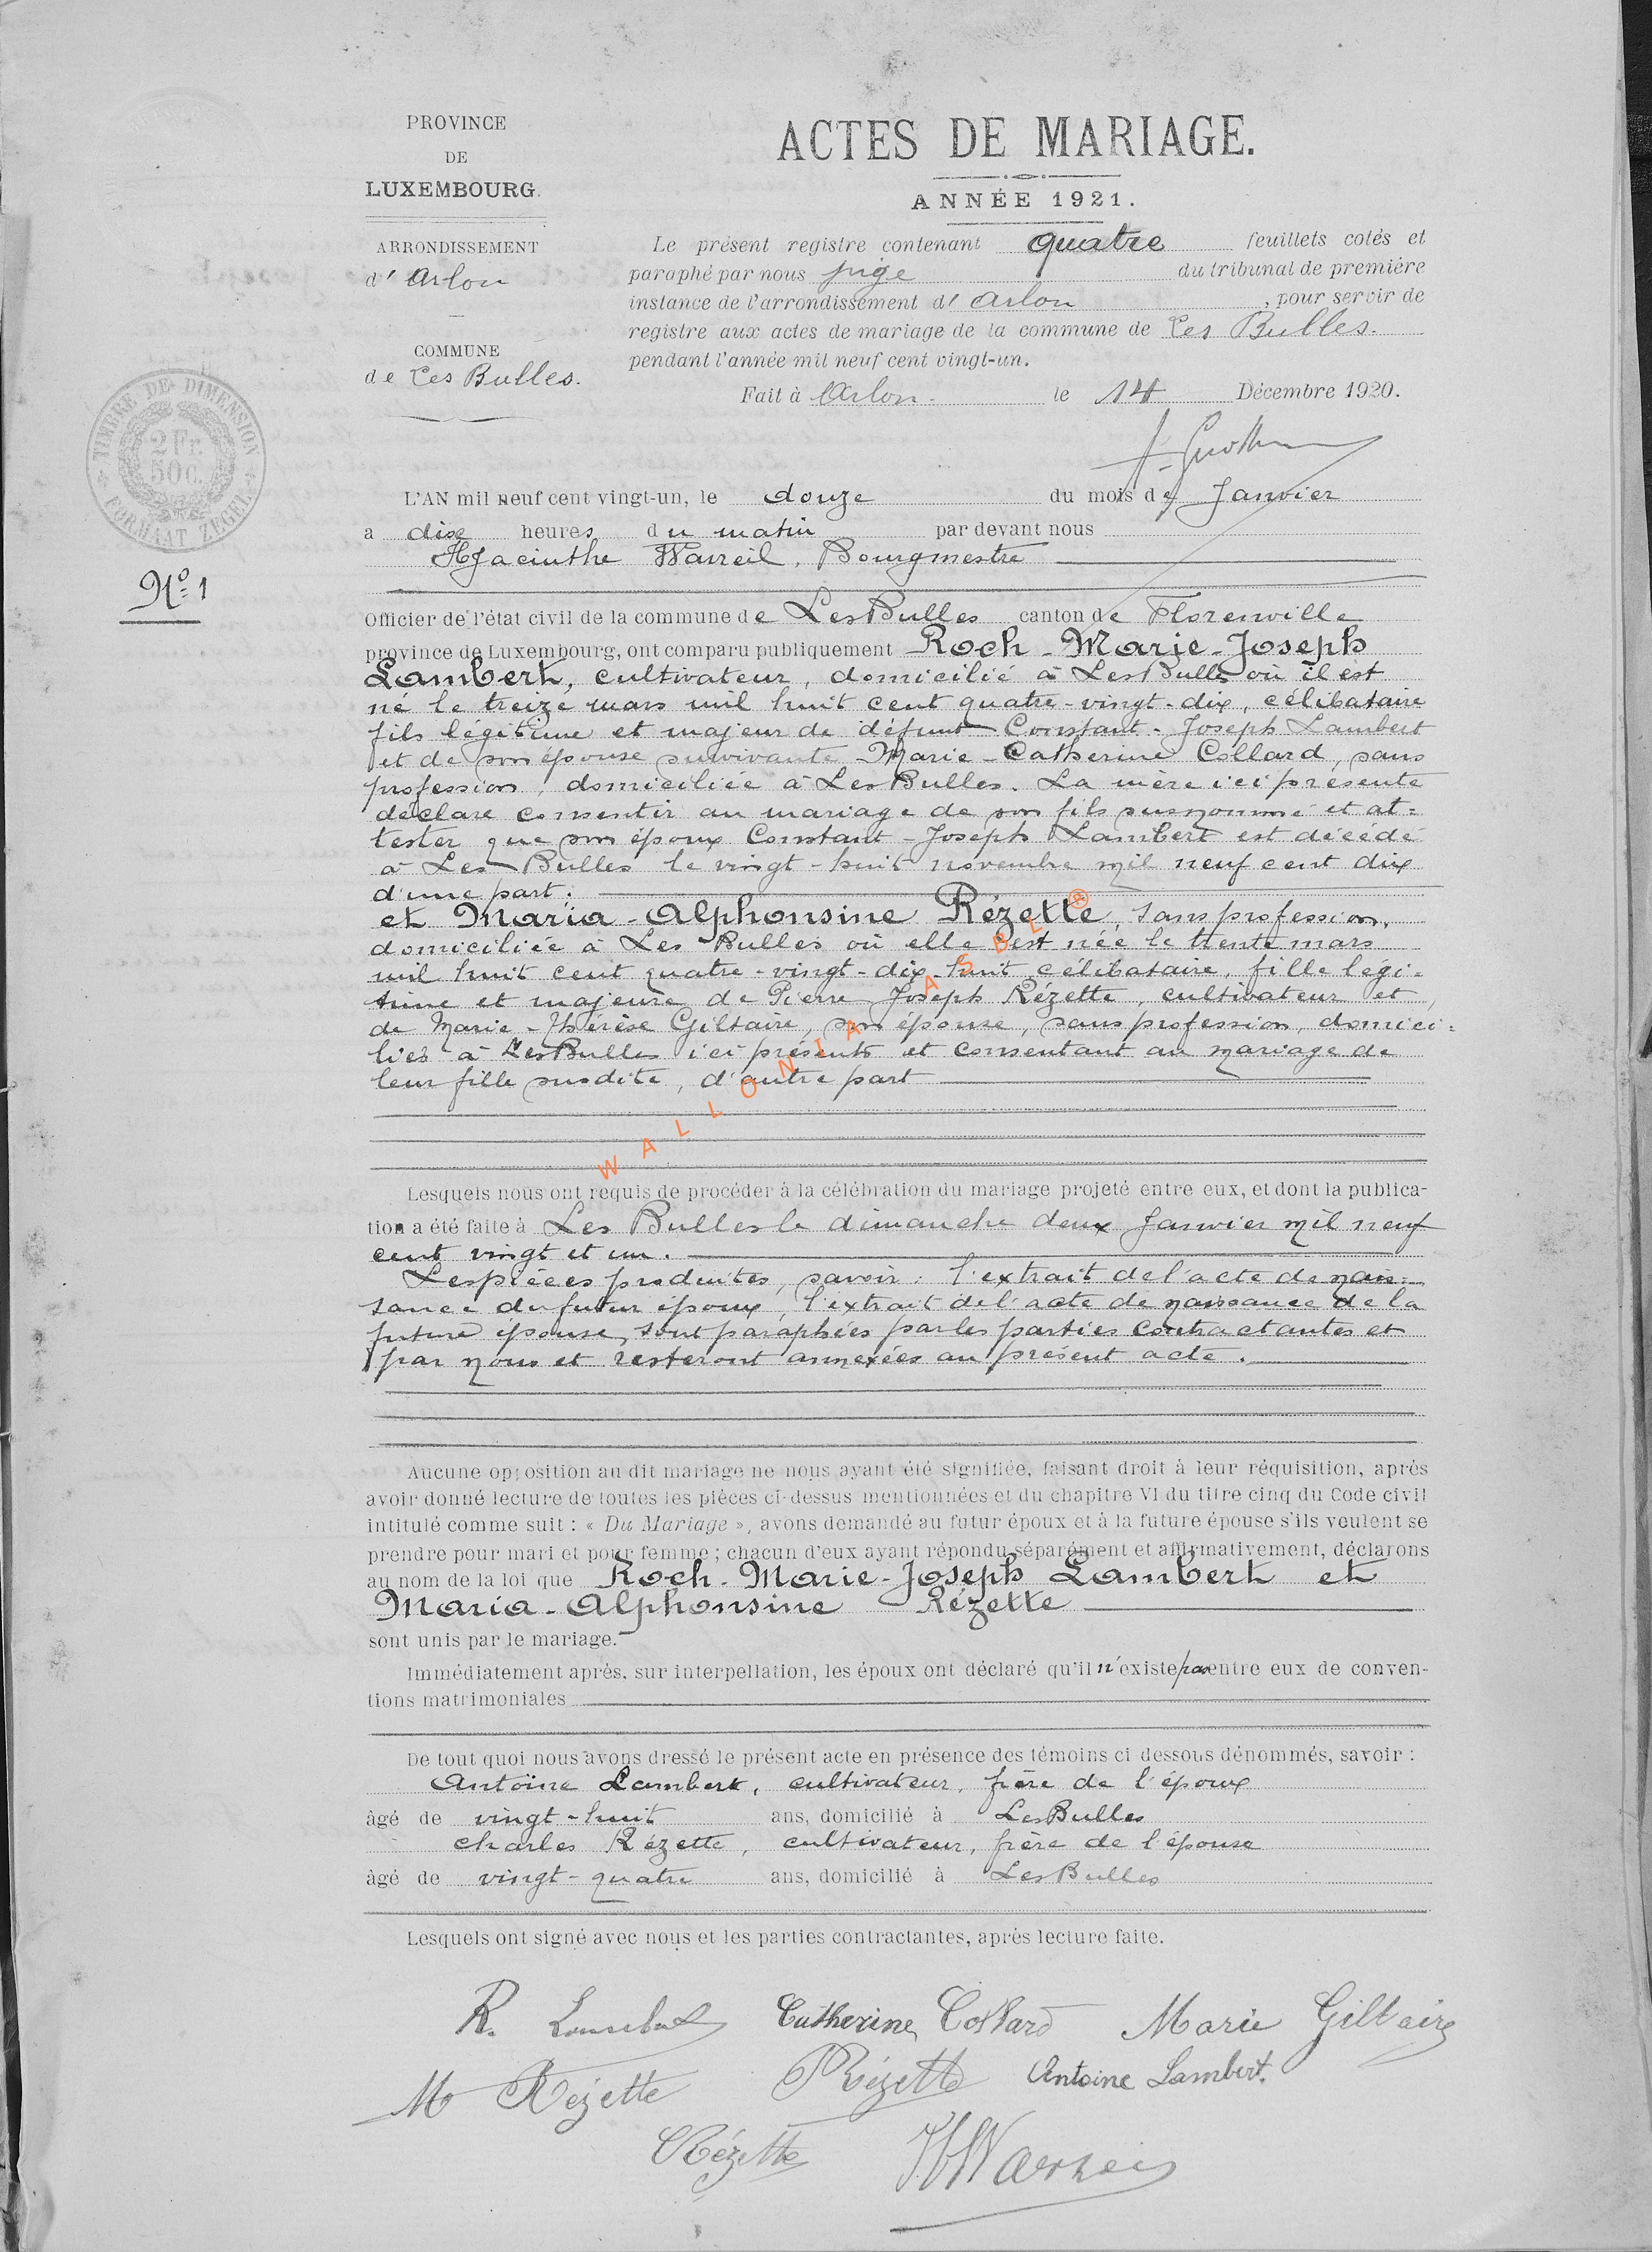 PROVINCE
DE
LUXEMBOURG.
ARRONDISSEMENT
d' Arlon
COMMUNE
de Les Bulles.
TIMBRE DE DIMENSION
2 Fr.
50 c.
FORMAAT ZEGEL
N° 1
ACTES DE MARIAGE.
ANNÉE 1921.
Le présent registre contenant quatre feuillets cotés et
paraphé par nous juge du tribunal de première
instance de l'arrondissement d' Arlon, pour servir de
registre aux actes de mariage de la commune de Les Bulles.
pendant l'année mil neuf cent vingt-un.
Fait à Arlon. le 14 Décembre 1920.
L'AN mil neuf cent vingt-un, le douze du mois de Janvier
a dix heures du matin par devant nous
Hyacinthe Warreil, Bourgmestre
Officier de l'état civil de la commune de Les Bulles canton de Florenville
province de Luxembourg, ont comparu publiquement Roch-Marie-Joseph
Lambert, cultivateur, domicilié à Les Bulles où il est
né le treize mars mil huit cent quatre-vingt-dix, célibataire
fils légitime et majeur de défunt Constant-Joseph Lambert
et de son épouse survivante Marie-Catherine Collard, sans
profession, domiciliée à Les Bulles. La mère ici présente
déclare consentir au mariage de son fils susnommé et at=
tester que son époux Constant-Joseph Lambert est décédé
à Les Bulles le vingt-huit novembre mil neuf cent dix
d'une part.
et Maria-Alphonsine Rézette, sans profession,
domiciliée à Les Bulles où elle est née le trente mars
mil huit cent quatre-vingt-dix-huit, célibataire, fille légi=
time et majeure de Pierre Joseph Rézette, cultivateur et
de Marie-Thérèse Giltaire, son épouse, sans profession, domici=
liés à Les Bulles ici présents et consentant au mariage de
leur fille susdite, d'autre part
WALLONIA ASBL ®
Lesquels nous ont requis de procéder à la célébration du mariage projeté entre eux, et dont la publica-
tion a été faite à Les Bulles le dimanche deux Janvier mil neuf
cent vingt et un.
Les pièces produites, savoir: l'extrait de l'acte de nais=
sance du futur époux, l'extrait de l'acte de naissance de la
future épouse, sont paraphées par les parties contractantes et
par nous et resteront annexées au présent acte.
Aucune opposition au dit mariage ne nous ayant été signifiée, faisant droit à leur réquisition, après
avoir donné lecture de toutes les pièces ci-dessus mentionnées et du chapitre VI du titre cinq du Code civil
intitulé comme suit : « Du Mariage », avons demandé au futur époux et à la future épouse s'ils veulent se
prendre pour mari et pour femme ; chacun d'eux ayant répondu séparément et affirmativement, déclarons
au nom de la loi que Roch-Marie-Joseph Lambert et
Maria-Alphonsine Rézette
sont unis par le mariage.
Immédiatement après, sur interpellation, les époux ont déclaré qu'il n'existe pas entre eux de conven-
tions matrimoniales
De tout quoi nous avons dressé le présent acte en présence des témoins ci dessous dénommés, savoir :
Antoine Lambert, cultivateur, frère de l'époux
âgé de vingt-huit ans, domicilié à Les Bulles
Charles Rézette, cultivateur, frère de l'épouse
âgé de vingt-quatre ans, domicilié à Les Bulles
Lesquels ont signé avec nous et les parties contractantes, après lecture faite.
R. Lambert Catherine Collard Marie Giltaire
M Rézette Rézette Antoine Lambert.
CRézette